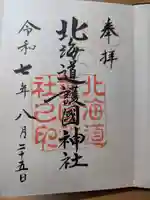 奉拝
北海道護國神社
北海道
社之印
令和七年八月二十五日